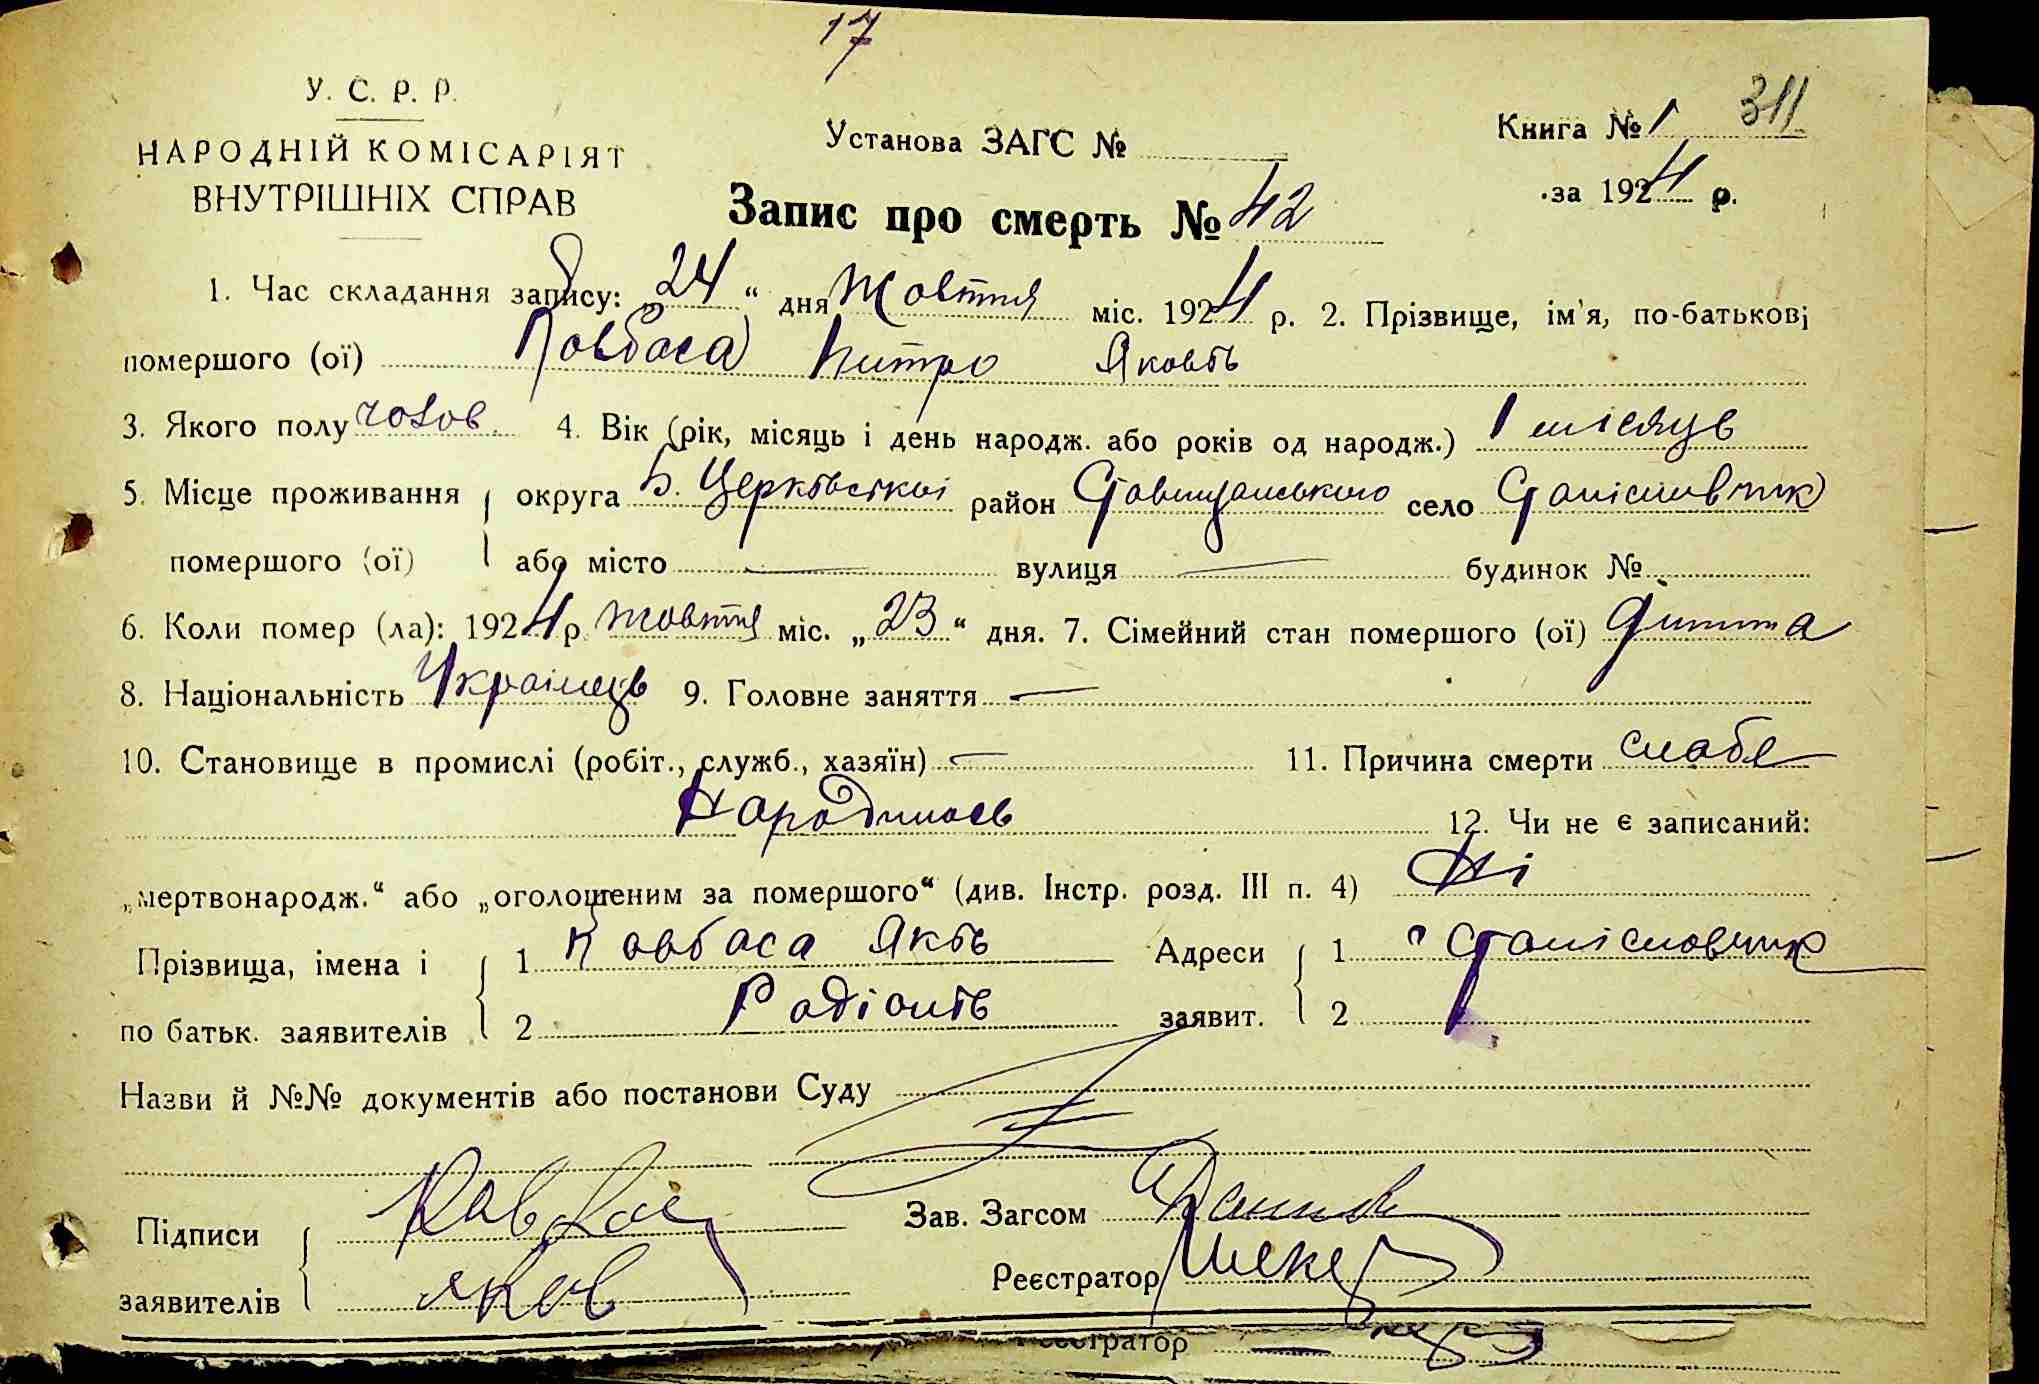 17
У. С. Р. Р.
НАРОДНІЙ КОМІСАРІЯТ
ВНУТРІШНІХ СПРАВ
Установа ЗАГС №
Книга № 1 311
за 1924 р.
Запис про смерть № 42
1. Час складання запису: „24“ дня Жовтня міс. 1924 р. 2. Прізвище, ім'я, по-батькові
помершого (ої) Ковбаса Питро Яковъ
3. Якого полу чолов. 4. Вік (рік, місяць і день народж. або років од народж.) 1 місяцв
5. Місце проживання помершого (ої) округа Б. Церквської район Ставищанського село Станіславчик
або місто — вулиця — будинок №
6. Коли помер (ла): 1924 р. жовтня міс. „23“ дня. 7. Сімейний стан помершого (ої) Дитина
8. Національність Українець 9. Головне заняття —
10. Становище в промислі (робіт., служб., хазяїн) — 11. Причина смерти слабе
Народилось 12. Чи не є записаний:
„мертвонародж.“ або „оголошеним за помершого“ (див. Інстр. розд. III п. 4) Ні
Прізвища, імена і по батьк. заявителів 1 Ковбаса Яквъ Адреси заявит. 1 с Станіславчик
2 Радіонъ 2
Назви й №№ документів або постанови Суду
Підписи заявителів Ковбаса Зав. Загсом
Яков Реєстратор
Реєстратор